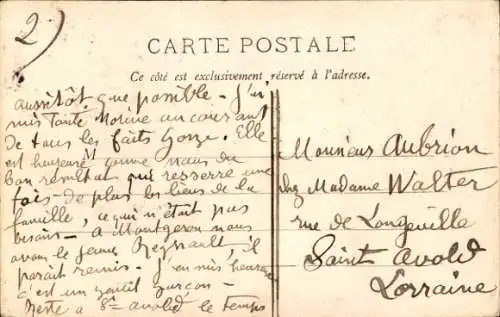 2)
CARTE POSTALE
Ce côté est exclusivement réservé à l'adresse.
aussitôt que possible - J'ai
mis Tante Marine au courant
de tous les faits Gorze. Elle
est heureuse comme nous du
bon résultat que resserre une
fois de plus les liens de la
famille, ce qui n'était pas
besoin - a Montgeron nous
avons le jeune Regnault, il
parait remis. J'en suis heureuse
c'est un gentil garçon -
Reste a St avold le temps
Monsieur Aubrion
chez Madame Walter
rue de Longeville
Saint Avold
Lorraine